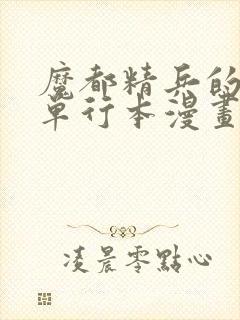 魔都精兵的
單行本漫畫
凌晨零點心